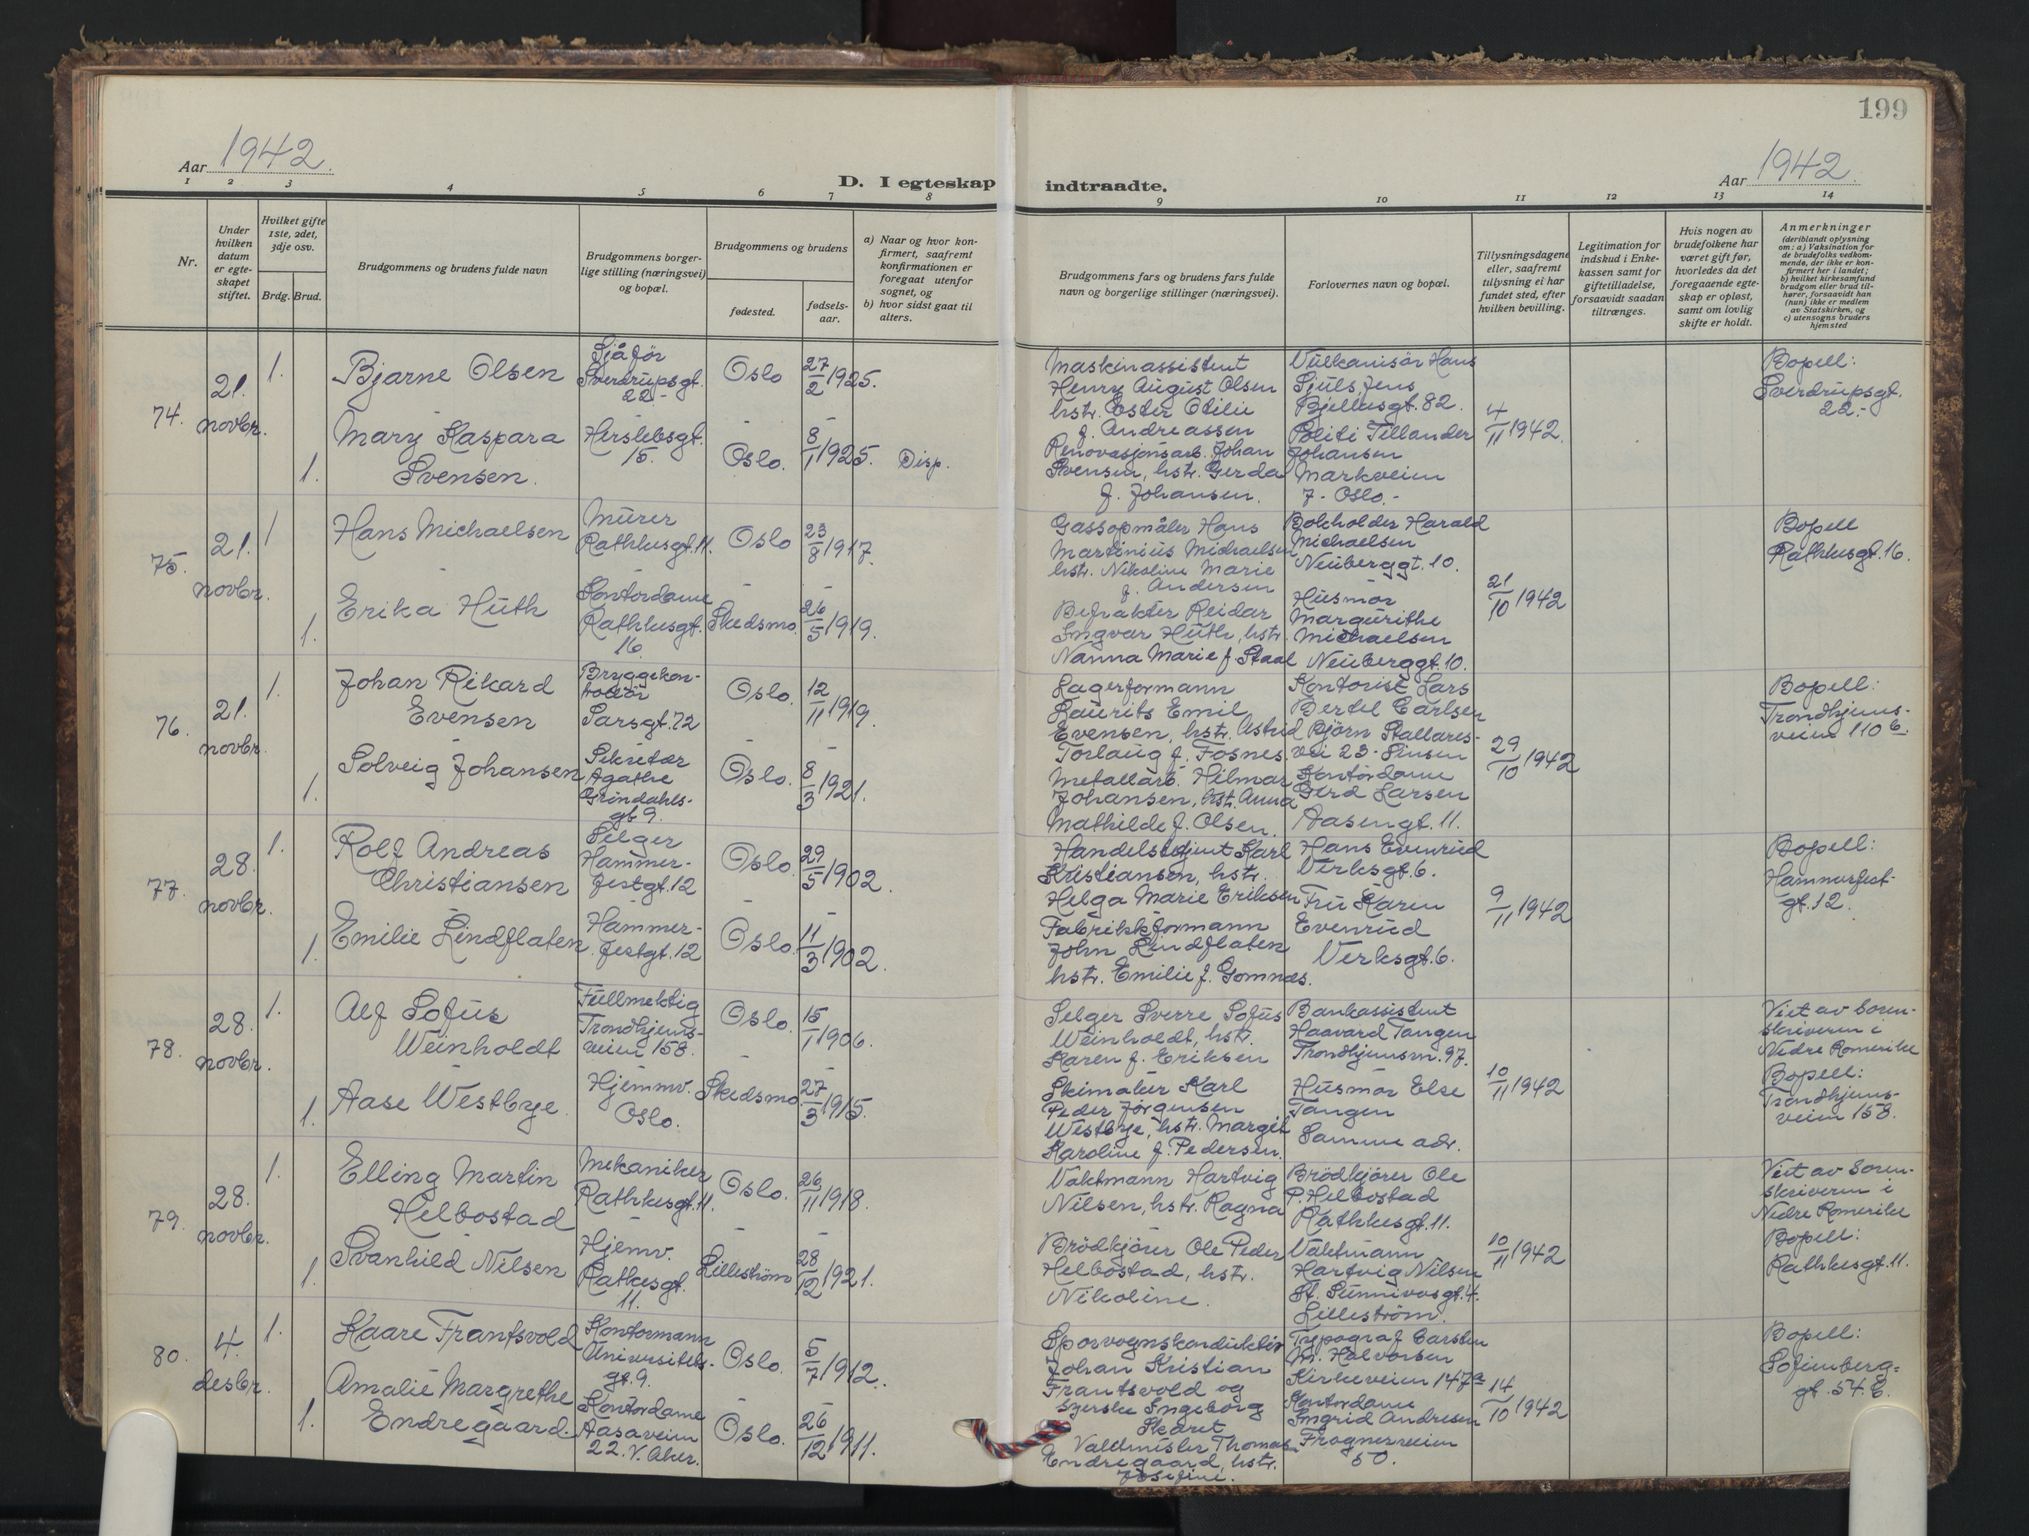 199
Aar 1942.
D. I egteskap indtraadte.
Aar 1942.
1 2 3 4 5 6 7 8 9 10 11 12 13 14
Nr.
Under hvilken datum er egteskapet stiftet.
Hvilket gifte 1ste, 2det, 3dje osv.
Brdg. Brud.
Brudgommens og brudens fulde navn
Brudgommens borgerlige stilling (næringsvei) og bopæl.
Brudgommens og brudens
fødested.
fødselsaar.
a) Naar og hvor konfirmert, saafremt konfirmationen er foregaat utenfor sognet, og
b) hvor sidst gaat til alters.
Brudgommens fars og brudens fars fulde navn og borgerlige stillinger (næringsvei).
Forlovernes navn og bopæl.
Tillysningsdagene eller, saafremt tillysning ei har fundet sted, efter hvilken bevilling.
Legitimation for indskud i Enkekassen samt for giftetilladelse, forsaavidt saadan tiltrænges.
Hvis nogen av brudefolkene har været gift før, hvorledes da det foregaaende egteskap er opløst, samt om lovlig skifte er holdt.
Anmerkninger
(deriblandt oplysning om: a) Vaksination for de brudefolks vedkommende, der ikke er konfirmert her i landet;
b) hvilket kirkesamfund brudgom eller brud tilhører, forsaavidt han (hun) ikke er medlem av Statskirken, og
c) utensogns bruders hjemsted
74. 21. novbr.
1. Bjarne Olsen
Sjåfør
Sverdrupsgt.
22.-
Oslo 27/2 1925.
1. Mary Kaspara
Svensen.
Herslebsgt.
15.
Oslo. 8/1 1925. Disp.
Maskinassistent
Henry August Olsen
hstr. Ester Otilie
f. Andreassen
Renovasjonsarb. Johan
Svensen, hstr. Gerda
f. Johansen.
Vulkanisør Hans
Sjuls Jens
Bjellusgt. 82.
Politi Tellander
Johansen
Markveien
7. Oslo.-
4/11 1942.
Bopell:
Sverdrupsgt.
22.-
75. 21. novbr.
1 Hans Michaelsen
Murer
Rathkesgt. 11.
Oslo 23/8 1917.
1. Erika Huth
Kontordame
Rathkesgt.
16.
Skedsmo. 26/5 1919.
Gassopmåler Hans
Martinius Michaelsen
hstr. Nikoline Marie
f. Andersen
Befrakter Reidar
Ingvar Huth, hstr.
Nanna Marie f. Staal
Bokholder Harald
Michaelsen
Neuberggt. 10.
Husmor
Margurithe
Michaelsen
Neuberggt. 10.
21/10 1942
Bopell
Rathkesgt. 16.
76. 21. novbr.
1. Johan Rikard
Evensen
Bryggekon-
trollør
Sarsgt. 72
Oslo. 12/11 1919.
1. Solveig Johansen
Sekretær
Agathe
Grøndahls-
gt 9.
Oslo. 8/3 1921.
Lagerformann
Laurits Emil
Evensen, hstr. Astrid
Torlaug f. Fosnes.
Metallarb. Hilmar
Johansen, hstr. Anna
Mathilde f. Olsen.
Kontorist Lars
Bertel Carlsen
Bjørn Stallares-
vei 23- Sinsen
Kontordame
Gerd Larsen
Aasengt. 11.
29/10 1942
Bopell:
Trondhjems-
veien 110 b.
77. 28. novbr.
1. Rolf Andreas
Christiansen
Selger
Hammer-
festgt. 12
Oslo 29/5 1902.
1. Emilie Lindflaten
Hammer-
festgt. 12
Oslo. 11/3 1902.
Handelsbetjent Karl
Kristiansen, hstr.
Helga Marie Eriksen
Fabrikkformann
John Lindflaten
hstr. Emilie f. Gomnæs.
Hans Evenrud
Verksgt. 6.
Fru Karen
Evenrud
Verksgt. 6.
9/11 1942
Bopell:
Hammerfest-
gt. 12.
78. 28. novbr.
1. Alf Sofus
Weinholdt
Fullmektig
Trondhjems-
veien 158.
Oslo. 15/1 1906.
1. Aase Westbye.
Hjemmv.
Oslo.
Skedsmo 27/3 1915.
Selger Sverre Sofus
Weinholdt, hstr.
Karen f. Eriksen
Skimaker Karl
Peder Jørgensen
Westbye, hstr. Margit
Karoline f. Pedersen.
Bankassistent
Haavard Tangen
Trondhjemsv. 97.
Husmor Else
Tangen
Samme adr.
10/11 1942
Viet av Soren-
skriveren i
Nedre Romerike
Bopell:
Trondhjems-
veien 158.
79. 28. novbr.
1. Elling Martin
Helbostad
Mekaniker
Rathkesgt. 11.
Oslo. 26/11 1918.
1. Svanhild Nilsen
Hjemv.
Ratkesgt.
11.
Lillestrøm 28/12 1921.
Vaktmann Hartvig
Nilsen, hstr. Ragna
Brödkjörer Ole Peder
Helbostad, hstr.
Nikoline.
Brödkjörer Ole
P. Helbostad
Rathkesgt. 11.
Vaktmann
Hartvig Nilsen
St. Sunnivasgt. 4.
Lilleström.
10/11 1942
Viet av Soren-
skriveren i
Nedre Romerike
Bopell:
Rathkesgt. 11.
80. 4. desbr.
1. Kaare Frantsvold
Kontormann
Universitets-
gt. 9.
Oslo. 5/7 1912.
1. Amalie Margrethe
Endregaard.
Kontordame
Aasaveien
22. V. Aker.
Oslo. 26/12 1911.
Sporvognskonduktør
Johan Kristian
Frantsvold og
Ingeborg
Skaret
Thomas
Endregaard, hstr.
Josefine.
Typograf Carsten
M. Halvorsen
Kirkeveien 147a
Kontordame
Ingrid Andresen
Frognerveien
50.
14/10 1942
Bopell:
Sofienberg-
gt. 54. C.